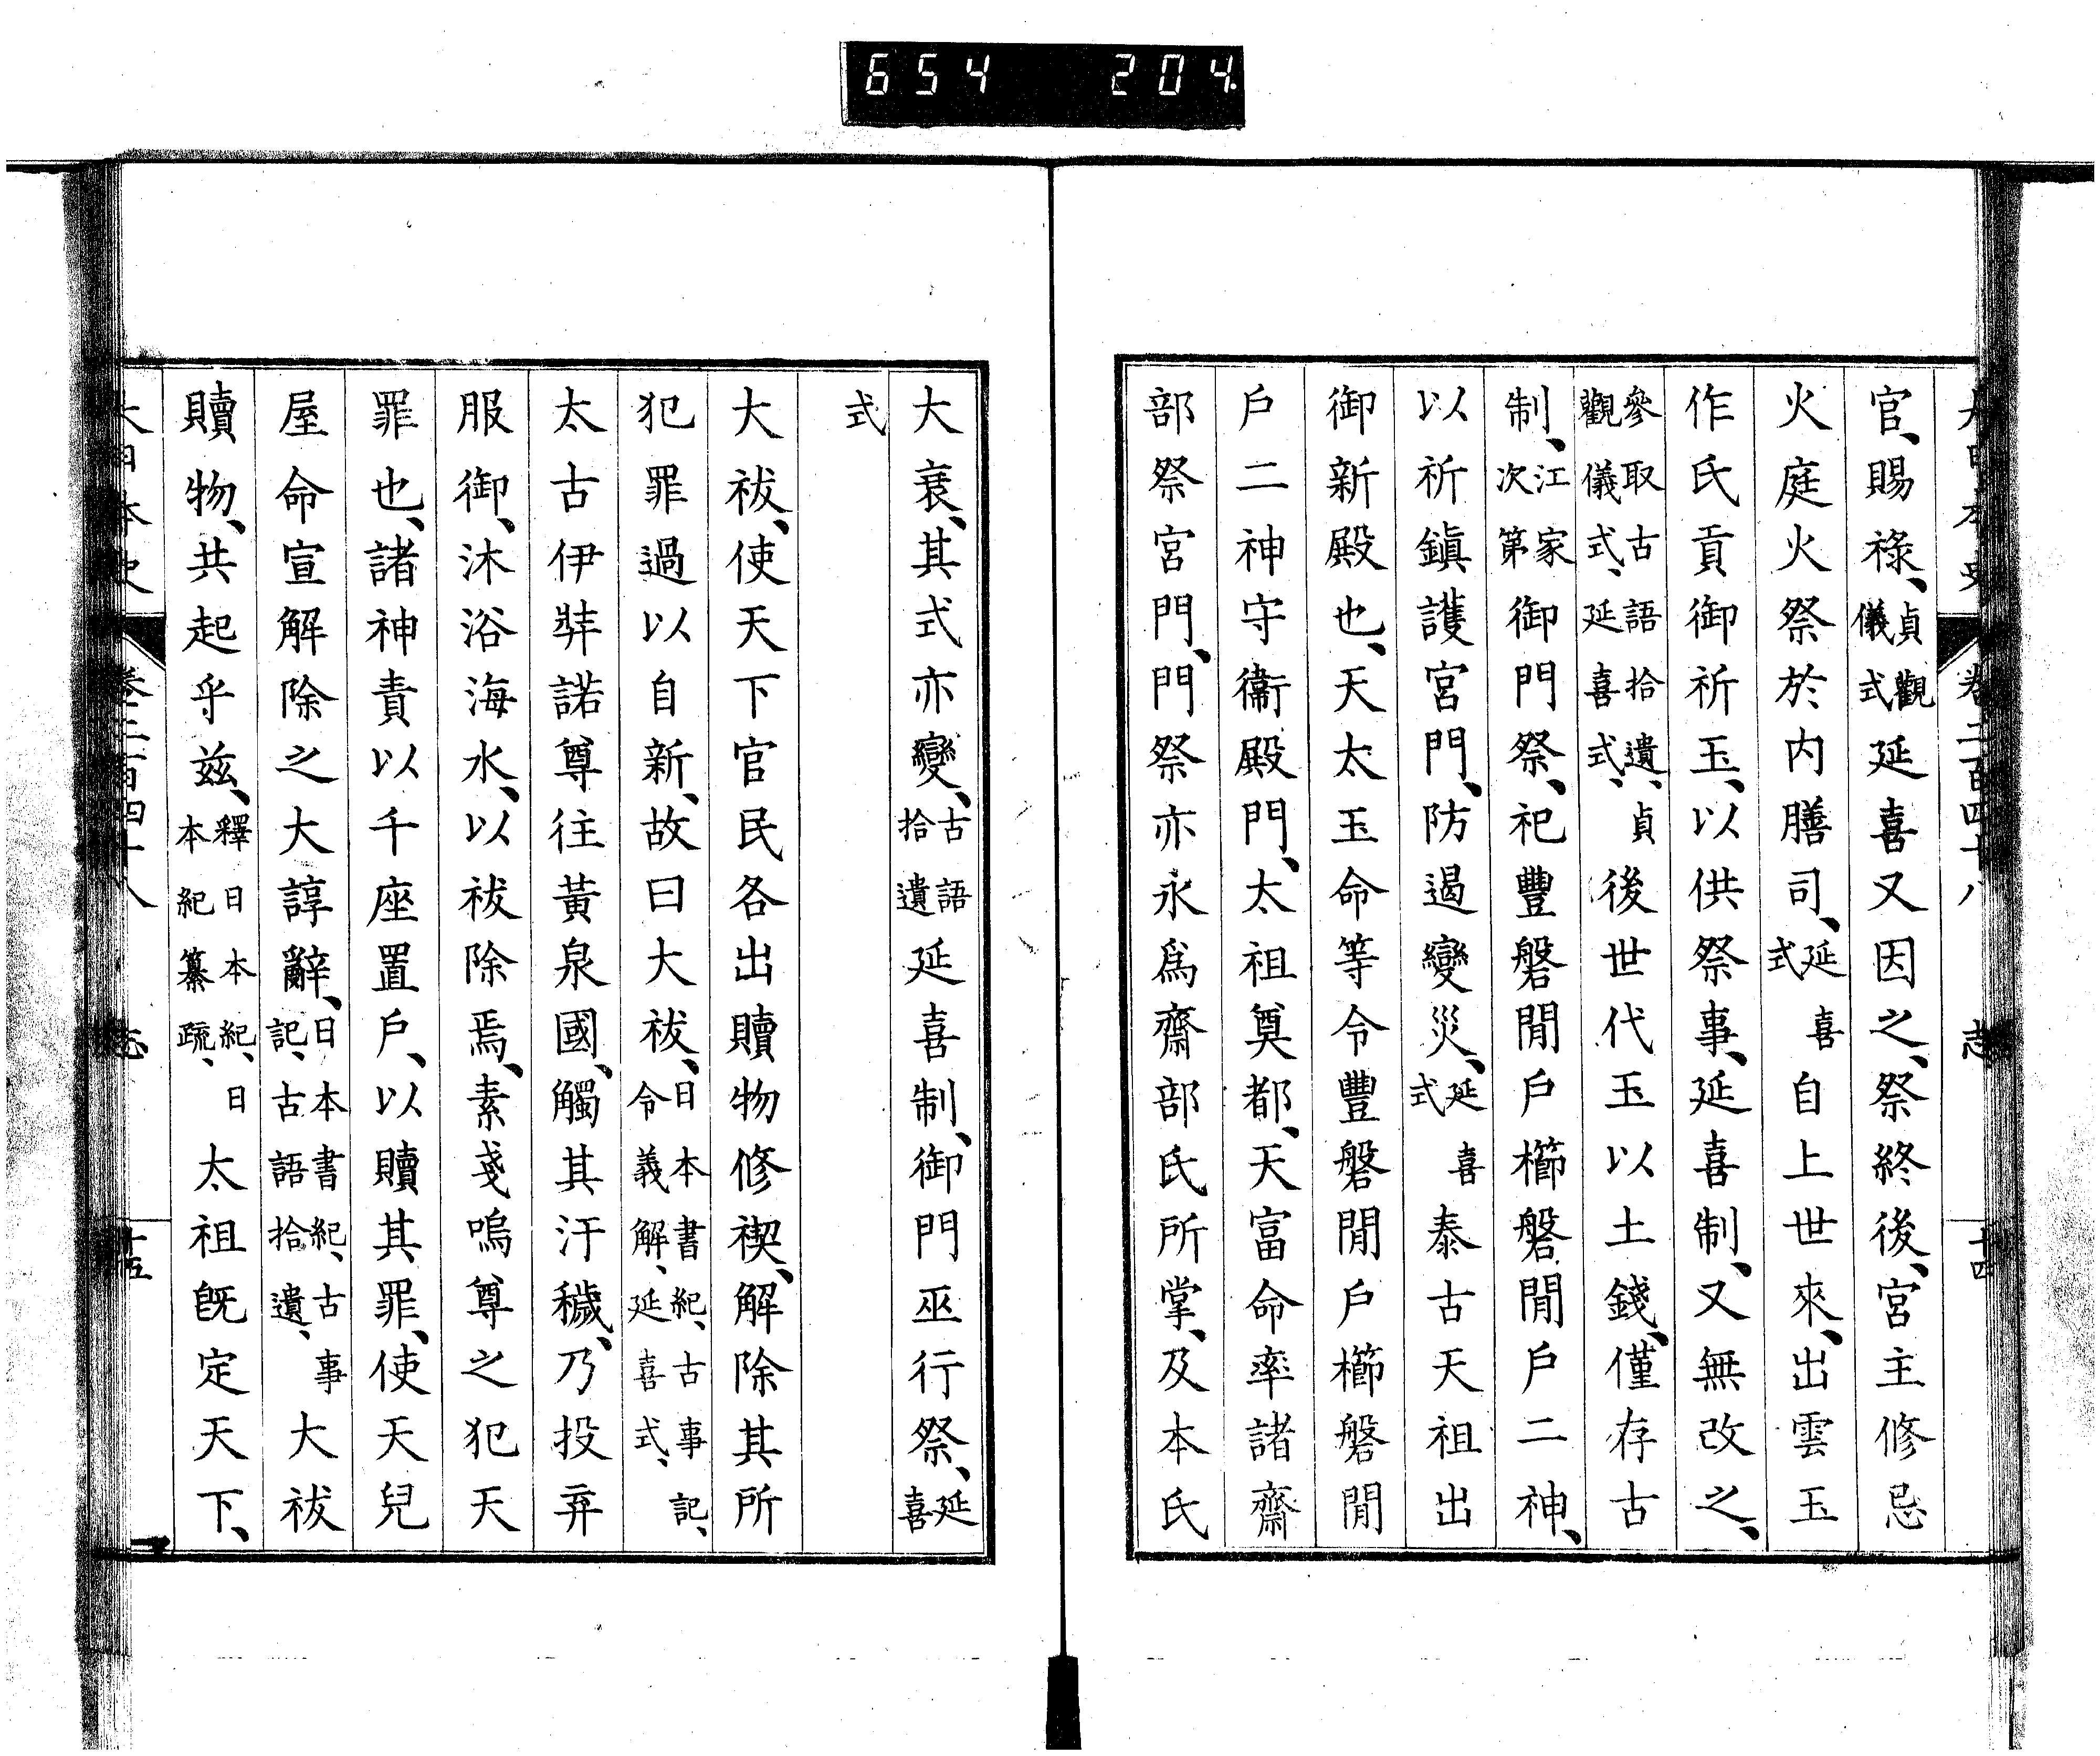 654 204.
大日本史 卷二百四十八 志 十四
官、賜祿、貞觀儀式延喜又因之、祭終後、宮主修忌
火庭火祭於内膳司、延喜式自上世來、出雲玉
作氏貢御祈玉、以供祭事、延喜制、又無改之、
參取古語拾遺、貞觀儀式、延喜式、後世代玉以土錢、僅存古
制、江家次第御門祭、祀豐磐閒戶櫛磐閒戶二神、
以祈鎭護宮門、防遏變災、延喜式泰古天祖出
御新殿也、天太玉命等令豐磐閒戶櫛磐閒
戶二神守衞殿門、太祖奠都、天富命率諸齋
部祭宮門、門祭亦永爲齋部氏所掌、及本氏
大衰、其式亦變、古語拾遺延喜制、御門巫行祭、延喜
式
大祓、使天下官民各出贖物修禊、解除其所
犯罪過以自新、故曰大祓、日本書紀、古事記、令義解、延喜式、
太古伊弉諾尊往黃泉國、觸其汙穢、乃投弃
服御、沐浴海水、以祓除焉、素戔嗚尊之犯天
罪也、諸神責以千座置戶、以贖其罪、使天兒
屋命宣解除之大諄辭、日本書紀、古事記、古語拾遺、大祓
贖物、共起乎茲、釋日本紀、日本紀纂疏、太祖旣定天下、
大日本史 卷二百四十八 志 十五